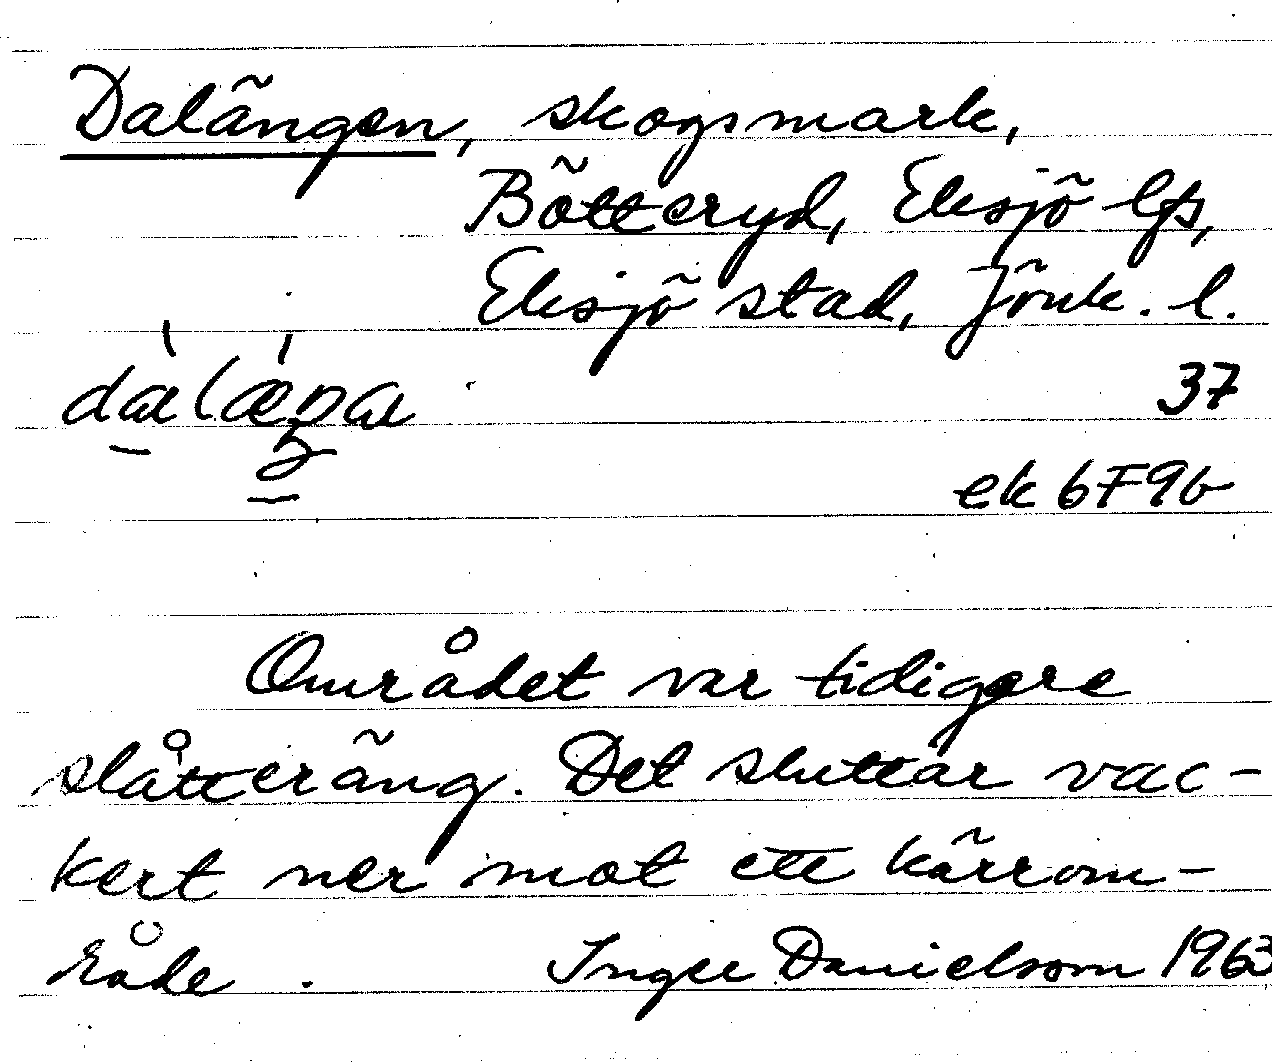 Dalängen, skogsmark,
Bötteryd, Eksjö lfs,
Eksjö stad, Jönk. l.
37
ek 6F9b
Området var tidigare
slåtteräng. Det sluttar vac-
kert ner mot ett kärrom-
råde. Inger Danielsson 1963